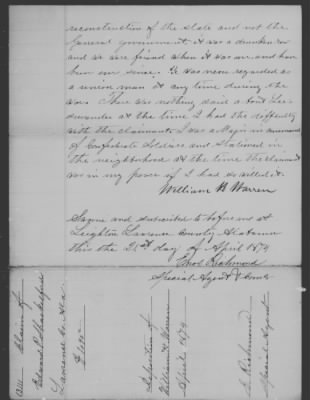 reconstruction of the state and not the
General government it was a drunken row
and we were friend when it was over and have
been ever since. He was never regarded as
a union man at any time during the
war. There was nothing said about Lee's
surrender at the time I had the difficulty
with the claimant. I was a Major in command
of Confederate Soldiers and Stationed in
the neighborhood at the time the claimant
was in my power if I had so willed it.
William H Warren
Sworn and subscribed to before me at
Leighton Lawrence County Alabama
this the 21st day of April 1879
Richmond
Special Agent &
Claim of
Edward
Lawrence Co Ala
Deposition of
William H Warren
April 1879
Richmond
Special Agent